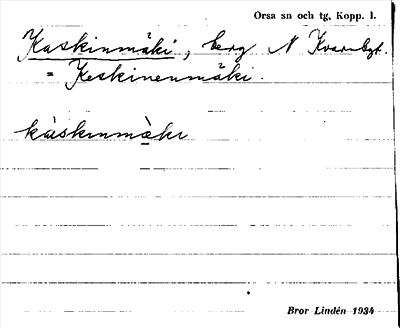 Orsa sn och tg, Kopp. l.
Kaskinmäki, berg N Kvarnbgt.
= Keskinenmäki.
kàskınmàkı
Bror Lindén 1934